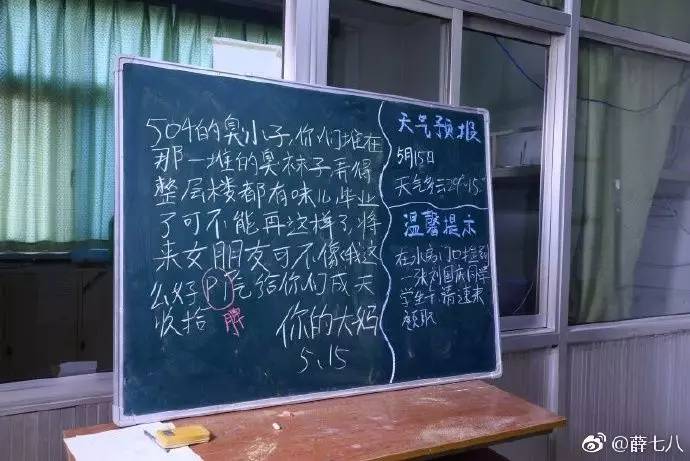 504的臭小子,你们堆在
那一堆的臭袜子弄得
整层楼都有味儿,毕业
了可不能再这样了,将
来女朋友可不像俄这
么好PI气给你们成天
收拾 脾
你的大妈
5.15
天气预报
5月15日
天气多云29°-15°
温馨提示
在水房门口捡到
一张刘国庆同学
学生卡请速来
领取
@薛七八